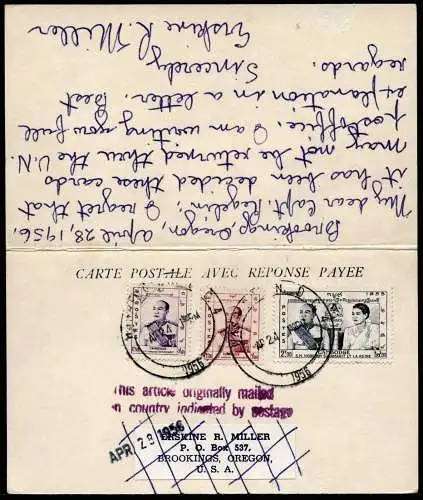 Brookings, Oregon, April 28, 1956.
My dear Capt. Regelin: I regret that
it has been decided these cards
may not be returned thru the U.N.
postoffice. I am writing you full
explanation in a letter. Best
regards.
Sincerely
Erskine R. Miller
CARTE POSTALE AVEC RÉPONSE PAYÉE
1955
CAMBODGE
1956
1956
This article originally mailed
in country indicated by postage
APR 28 1956
ERSKINE R. MILLER
P. O. BOX 537,
BROOKINGS, OREGON,
U. S. A.